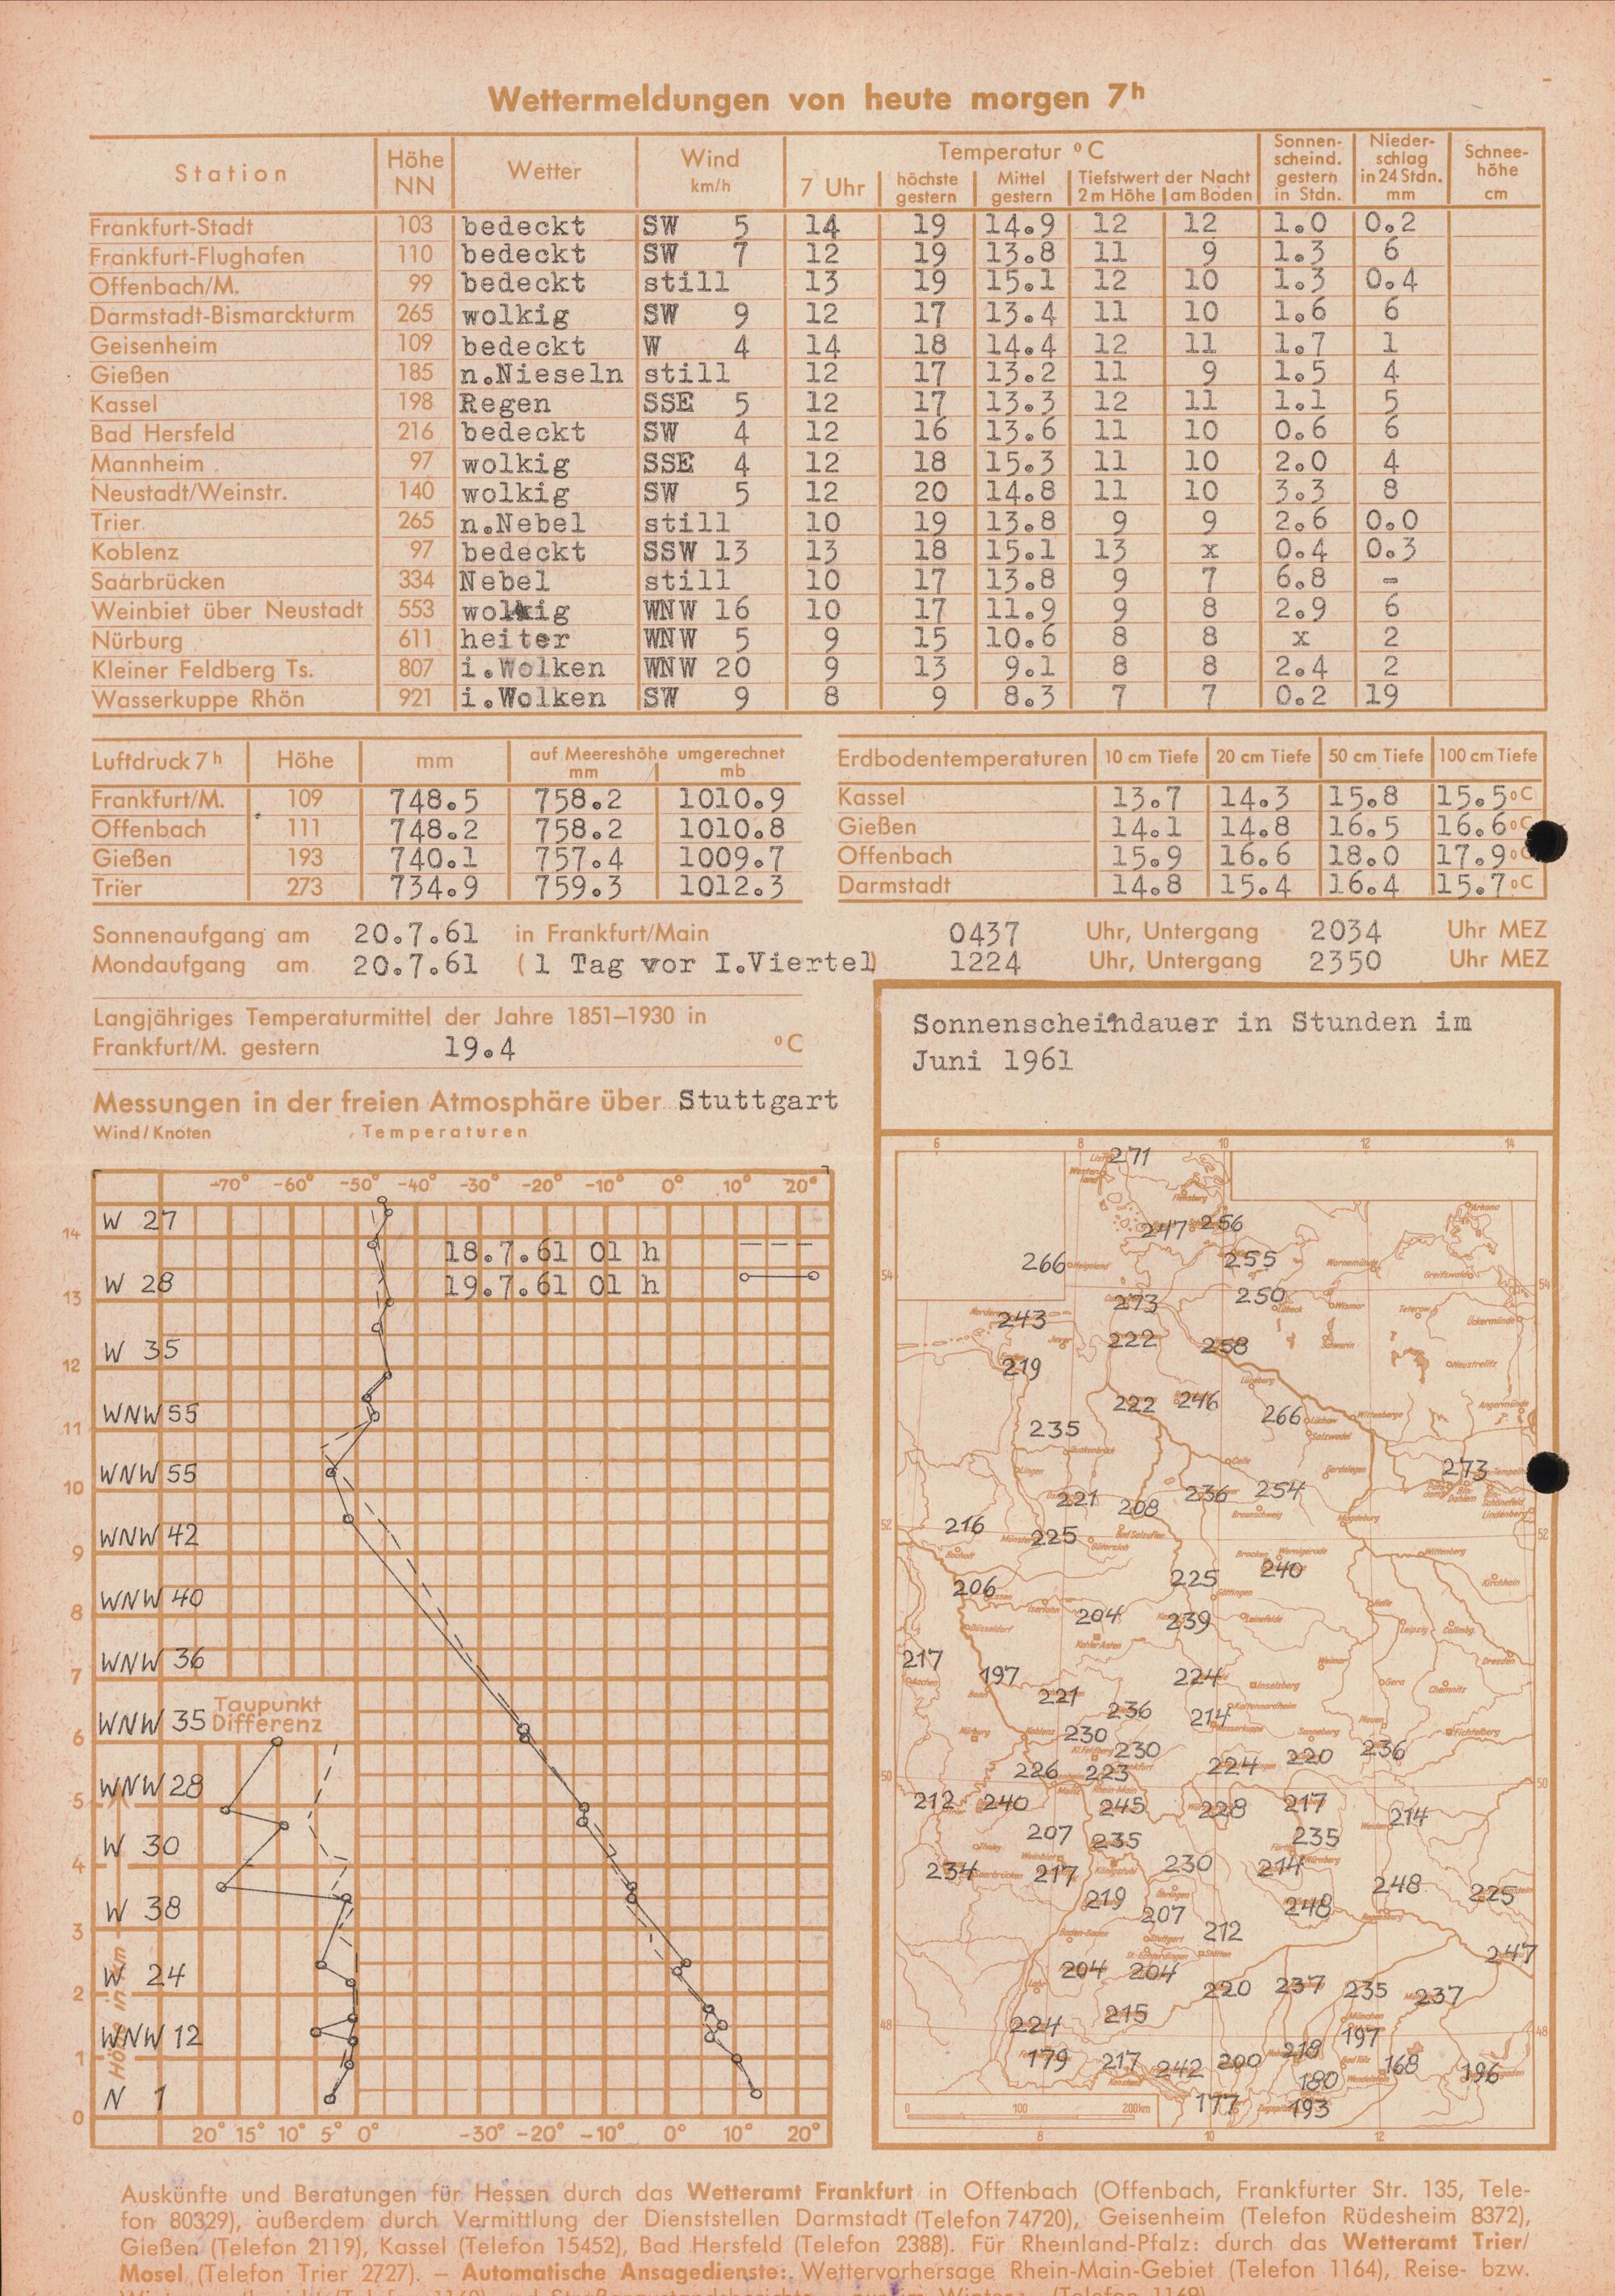 Wettermeldungen von heute morgen 7h
Station Höhe NN Wetter Wind km/h Temperatur °C 7 Uhr höchste gestern Mittel gestern Tiefstwert der Nacht 2 m Höhe am Boden Sonnen-scheind. gestern in Stdn. Nieder-schlag in 24 Stdn. mm Schnee-höhe cm
Frankfurt-Stadt 103 bedeckt SW 5 14 19 14.9 12 12 1.0 0.2
Frankfurt-Flughafen 110 bedeckt SW 7 12 19 13.8 11 9 1.3 6
Offenbach/M. 99 bedeckt still 13 19 15.1 12 10 1.3 0.4
Darmstadt-Bismarckturm 265 wolkig SW 9 12 17 13.4 11 10 1.6 6
Geisenheim 109 bedeckt W 4 14 18 14.4 12 11 1.7 1
Gießen 185 n.Nieseln still 12 17 13.2 11 9 1.5 4
Kassel 198 Regen SSE 5 12 17 13.3 12 11 1.1 5
Bad Hersfeld 216 bedeckt SW 4 12 16 13.6 11 10 0.6 6
Mannheim 97 wolkig SSE 4 12 18 15.3 11 10 2.0 4
Neustadt/Weinstr. 140 wolkig SW 5 12 20 14.8 11 10 3.3 8
Trier 265 n.Nebel still 10 19 13.8 9 9 2.6 0.0
Koblenz 97 bedeckt SSW 13 13 18 15.1 13 x 0.4 0.3
Saarbrücken 334 Nebel still 10 17 13.8 9 7 6.8 –
Weinbiet über Neustadt 553 wolkig WNW 16 10 17 11.9 9 8 2.9 6
Nürburg 611 heiter WNW 5 9 15 10.6 8 8 x 2
Kleiner Feldberg Ts. 807 i.Wolken WNW 20 9 13 9.1 8 8 2.4 2
Wasserkuppe Rhön 921 i.Wolken SW 9 8 9 8.3 7 7 0.2 19
Luftdruck 7h Höhe mm auf Meereshöhe umgerechnet mm mb
Frankfurt/M. 109 748.5 758.2 1010.9
Offenbach 111 748.2 758.2 1010.8
Gießen 193 740.1 757.4 1009.7
Trier 273 734.9 759.3 1012.3
Erdbodentemperaturen 10 cm Tiefe 20 cm Tiefe 50 cm Tiefe 100 cm Tiefe
Kassel 13.7 14.3 15.8 15.5 °C
Gießen 14.1 14.8 16.5 16.6 °C
Offenbach 15.9 16.6 18.0 17.9 °C
Darmstadt 14.8 15.4 16.4 15.7 °C
Sonnenaufgang am 20.7.61 in Frankfurt/Main 0437 Uhr, Untergang 2034 Uhr MEZ
Mondaufgang am 20.7.61 (1 Tag vor I.Viertel) 1224 Uhr, Untergang 2350 Uhr MEZ
Langjähriges Temperaturmittel der Jahre 1851–1930 in
Frankfurt/M. gestern 19.4 °C
Messungen in der freien Atmosphäre über Stuttgart
Wind/Knoten Temperaturen
-70° -60° -50° -40° -30° -20° -10° 0° 10° 20°
14 W 27
18.7.61 01 h
13 W 28
19.7.61 01 h
12 W 35
11 WNW 55
10 WNW 55
9 WNW 42
8 WNW 40
7 WNW 36
6 WNW 35
Taupunkt
Differenz
5 WNW 28
4 W 30
3 W 38
2 W 24
1 WNW 12
0 N 1
Höhe in km
20° 15° 10° 5° 0° -30° -20° -10° 0° 10° 20°
Sonnenscheindauer in Stunden im
Juni 1961
6 8 10 12 14
271
247 256
266 Helgoland 255 Warnemünde Arkona
54 Greifswald 54
273 250 Lübeck Wismar Teterow
243 Ückermünde
222 258 Schwerin
219 Neustrelitz
Lüneburg
222 246 266 Lüchow Wittenberge Angermünde
235 Salzwedel
Lingen Celle Gardelegen 273
221 208 236 254
Braunschweig Magdeburg Lindenberg
52 216 225 Bad Salzuflen 52
Bocholt Gütersloh Brocken Wernigerode Wittenberg
206 225 240 Kirchhain
Göttingen
204 239 Leinefelde Halle
Düsseldorf Kahler Asten Leipzig
217 197 224 Weimar Dresden
Aachen Bonn 221 Inselsberg Gera Chemnitz
236 214 Kaltennordheim Plauen
Nürburg Koblenz 230 Wasserkuppe Sonneberg Fichtelberg
230 224 220 236
50 226 223 50
212 240 245 228 217 214
207 235 235
234 217 230 214
Saarbrücken Nürnberg
219 207 248 248 225
Öhringen
Baden-Baden Stuttgart 212
204 204 247
220 237 235 237
215 München
48 224 197 48
179 217 242 200 218 168 196
180
177 193
0 100 200 km
8 10 12
Auskünfte und Beratungen für Hessen durch das Wetteramt Frankfurt in Offenbach (Offenbach, Frankfurter Str. 135, Tele-
fon 80329), außerdem durch Vermittlung der Dienststellen Darmstadt (Telefon 74720), Geisenheim (Telefon Rüdesheim 8372),
Gießen (Telefon 2119), Kassel (Telefon 15452), Bad Hersfeld (Telefon 2388). Für Rheinland-Pfalz: durch das Wetteramt Trier/
Mosel (Telefon Trier 2727). – Automatische Ansagedienste: Wettervorhersage Rhein-Main-Gebiet (Telefon 1164), Reise- bzw.